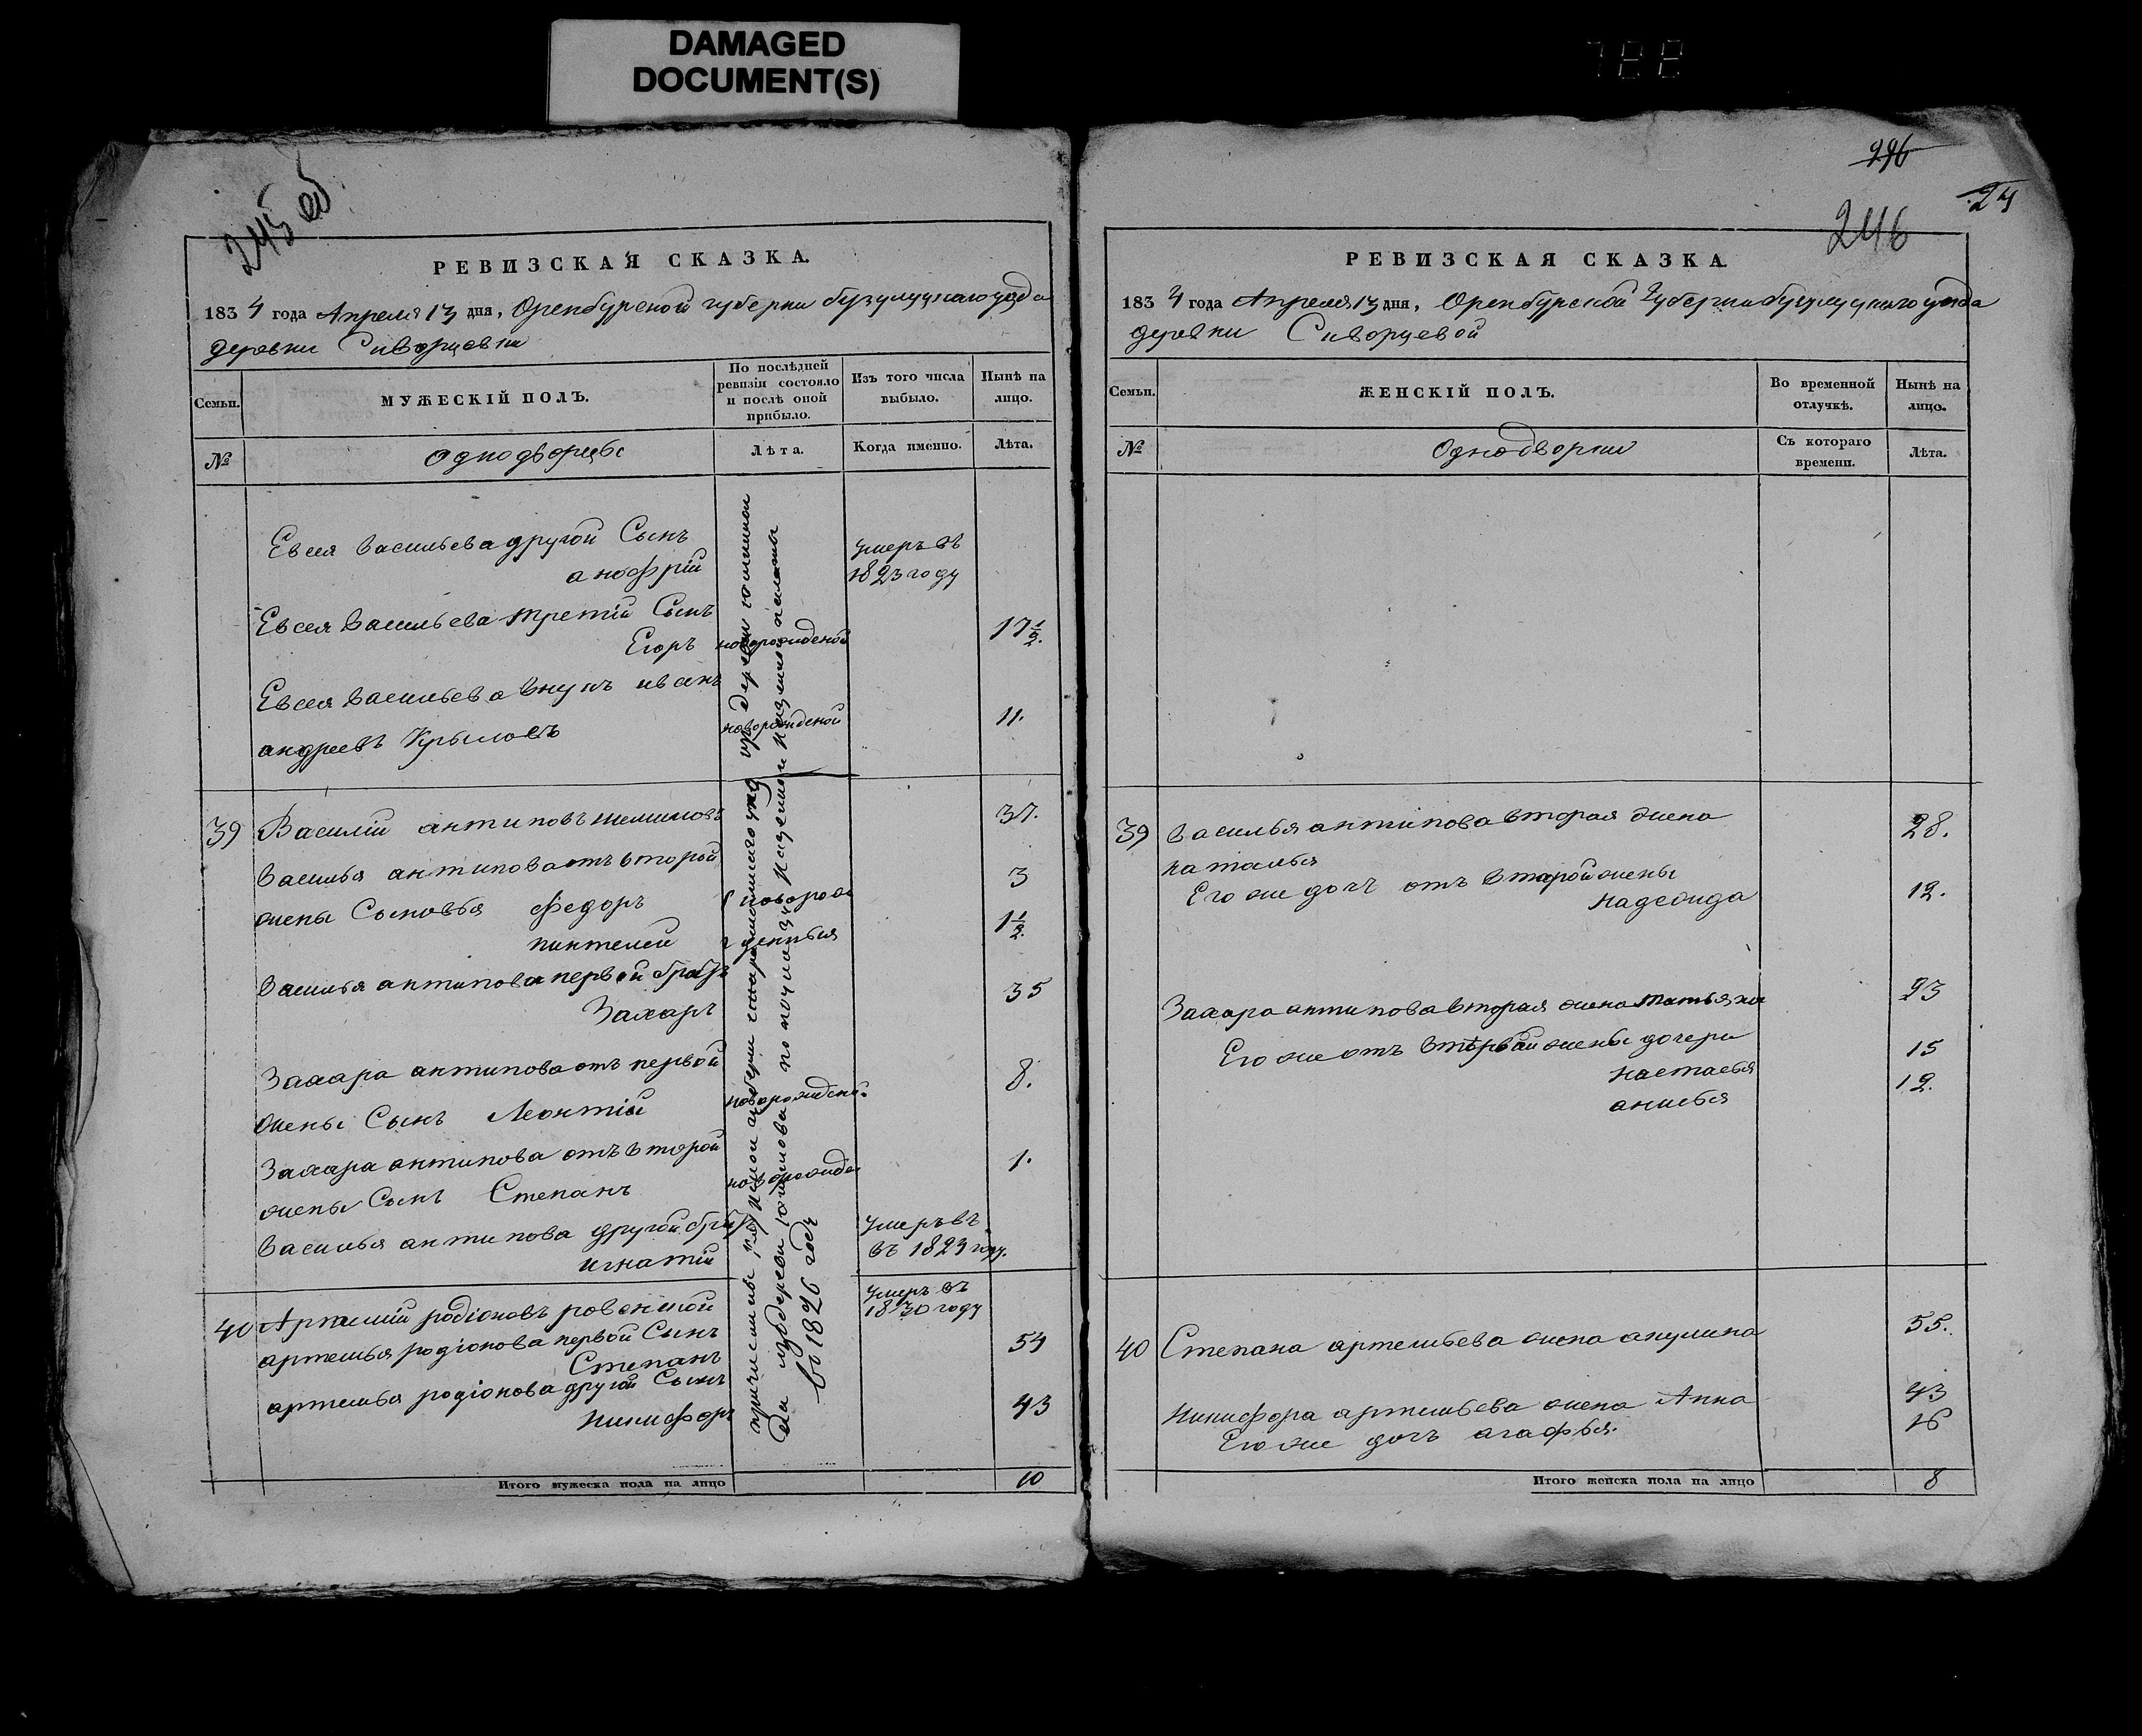 DAMAGED
DOCUMENT(S)
245 об
РЕВИЗСКАЯ СКАЗКА.
1834 года Апреля 13 дня, Оренбургской губерни бузулуцкаго уезда
деревни Сиворцевки
Семьи.
МУЖЕСКІЙ ПОЛЪ.
По послѣдней ревизіи состояло и послѣ оной прибыло.
Изъ того числа выбыло.
Нынѣ на лицо.
№
Однодворцы
Лѣта.
Когда именно.
Лѣта.
Евсея васильева другой Сынъ
анофрій
умеръ въ
1823 году
Евсея васильева третій Сынъ
Егоръ новорожденой 17 1/2.
Евсея васильева внукъ иванъ
андреевъ Крыловъ новорожденой 11.
39 Василій антиповъ 37.
василья антипова отъ второй
жены Сыновья федоръ 3
пантелей 1 1/2.
василья антипова первой братъ
Захаръ 35
Захара антипова отъ первой
жены Сынъ Леонтій новорожденой 8.
Захара антипова отъ второй
жены Сынъ Степанъ 1.
василья антипова другой братъ
игнатій
умеръ въ
въ 1823 году.
40 Артемій родіоновъ
умеръ въ
1830 году
артемья родіонова первой Сынъ
Степанъ 54
артемья родіонова другой Сынъ
никифоръ 43
во 1826 годъ
Итого мужеска пола на лицо 10
296
24
246
РЕВИЗСКАЯ СКАЗКА.
1834 года Апреля 13 дня, Оренбургской губерни бузулуцкаго уезда
деревни Сиворцевой
Семьи.
ЖЕНСКІЙ ПОЛЪ.
Во временной отлучкѣ.
Нынѣ на лицо.
№
Однодворки
Съ котораго времени.
Лѣта.
39 василья антипова вторая жена 28.
наталья
Его же дочь отъ второй жены
надежида 12.
Захара антипова вторая жена татьяна 23
Его же отъ первой жены дочери
настасья 15
анисья 12.
40 Степана артемьева жена акулина 55.
никифора артемьева жена Анна 43
Его же дочь агафья. 16
Итого женска пола на лицо 8